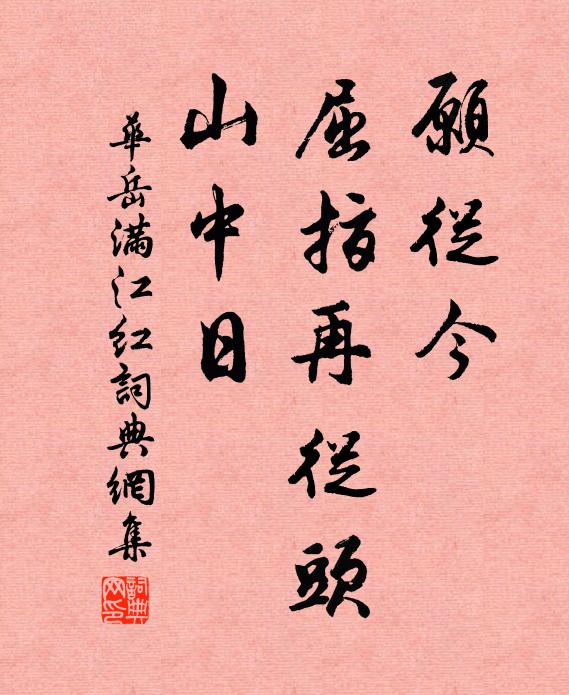 願從今
屈指再從頭
山中日
華岳滿江紅詞典網集
詞典
网印